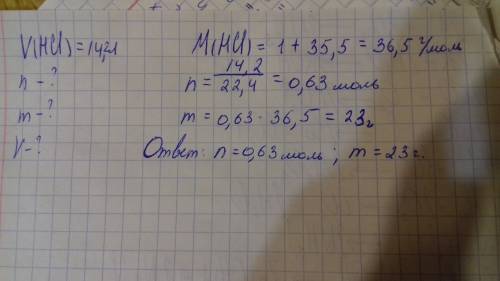 V(HCl)=14,2л M(HCl)= 1 + 35,5 = 36,5 г/моль
n - ? n = 14,2/22,4 = 0,63 моль
m - ? m = 0,63 · 36,5 = 23г
V - ? Ответ: n = 0,63 моль ; m = 23 г.